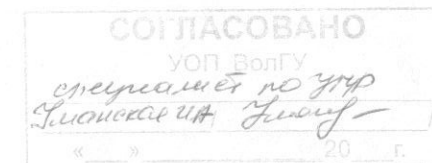 СОГЛАСОВАНО
УОП ВолГУ
специалист по УПР
Уманская ИА
« » 20 г.